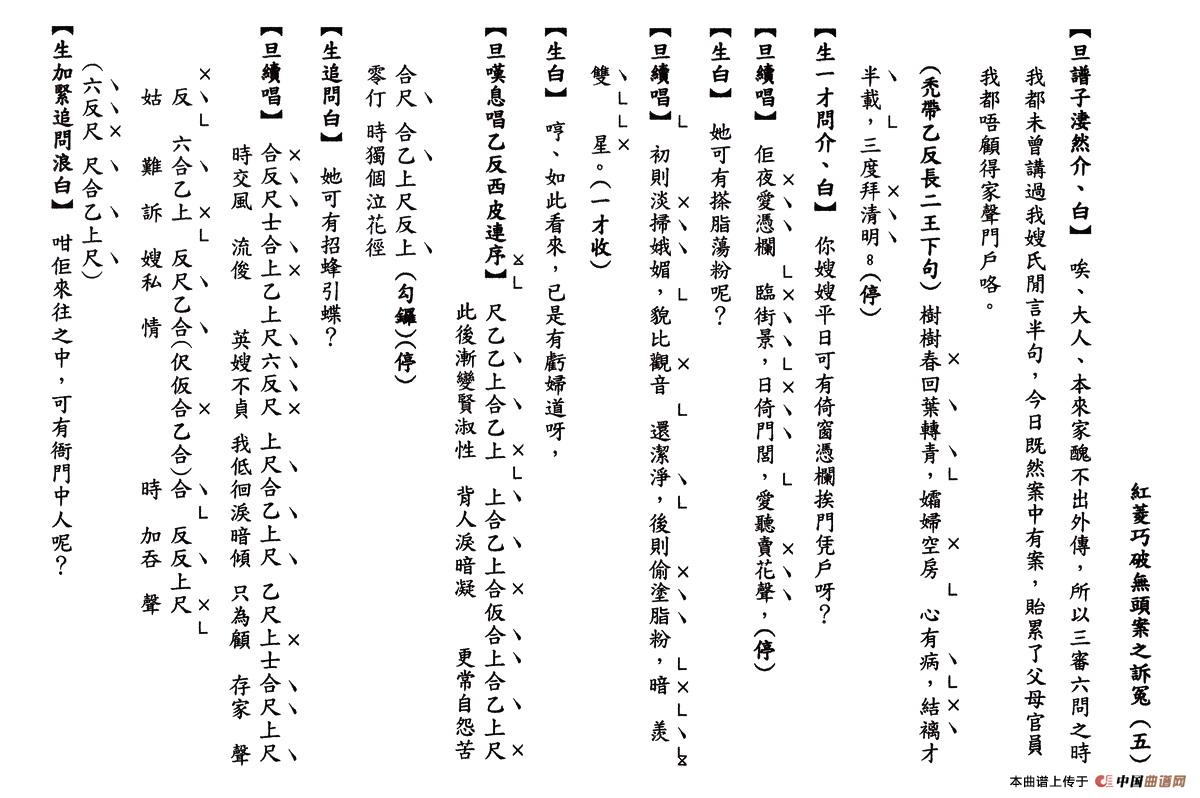 紅菱巧破無頭案之訴冤（五）
【旦譜子淒然介、白】 唉、大人、本來家醜不出外傳，所以三審六問之時
我都未曾講過我嫂氏閒言半句，今日既然案中有案，貽累了父母官員
我都唔顧得家聲門戶咯。
（禿帶乙反長二王下句）樹樹春回葉轉青，孀婦空房 心有病，結褵才
半載，三度拜清明。（停）
【生一才問介、白】 你嫂嫂平日可有倚窗憑欄挨門凭戶呀？
【旦續唱】 佢夜愛憑欄 臨街景，日倚門閭，愛聽賣花聲，（停）
【生白】 她可有搽脂蕩粉呢？
【旦續唱】 初則淡掃娥媚，貌比觀音 還潔淨，後則偷塗脂粉，暗 羨
雙 星。（一才收）
【生白】 哼、如此看來，已是有虧婦道呀，
【旦嘆息唱乙反西皮連序】 尺乙乙上合乙上 上合乙上合仮合上合乙上尺
此後漸變賢淑性 背人淚暗凝 更常自怨苦
合尺 合乙上尺反上（勾鑼）（停）
零仃 時獨個泣花徑
【生追問白】 她可有招蜂引蝶？
【旦續唱】 合反尺士合上乙上尺六反尺 上尺合乙上尺 乙尺上士合尺上尺
時交風 流俊 英嫂不貞 我低徊淚暗傾 只為顧 存家 聲
反 六合乙上 反尺乙合（伬仮合乙合）合 反反上尺
姑 難 訴 嫂私 情 時 加吞 聲
（六反尺 尺合乙上尺）
【生加緊追問浪白】 咁佢來往之中，可有衙門中人呢？
本曲谱上传于 中国曲谱网